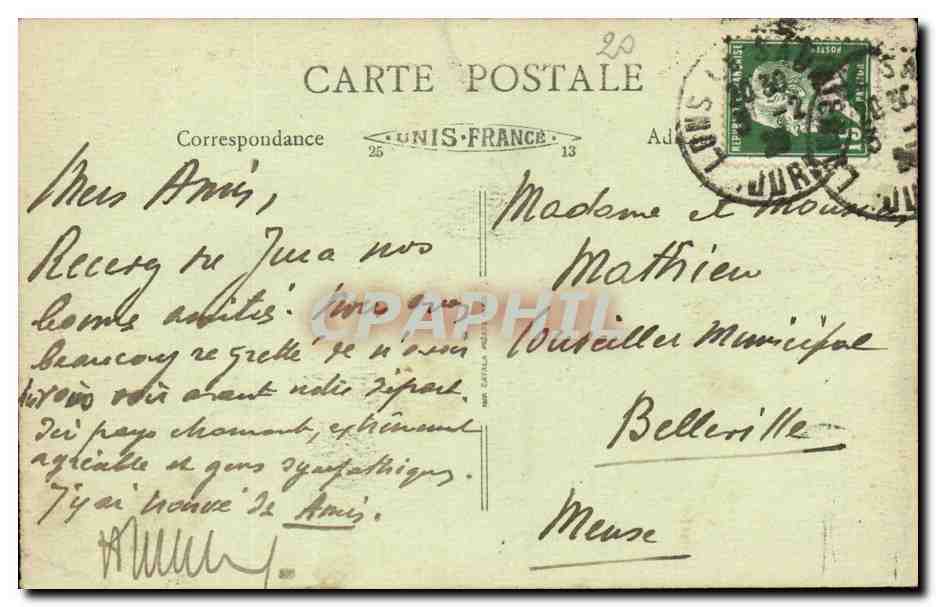 20
CARTE POSTALE
Correspondance
UNIS-FRANCE
25
13
Ad
REPUBLIQUE FRANCAISE
POSTES
15
LONS
JURA
Mes Amis,
Recevez du Jura nos
bonnes amitiés. Nous avons
beaucoup regretté de n'avoir
voir avant notre départ.
Ici pays charmant, extrêmement
agréable et gens sympathiques.
J'y ai trouvé de Amis.
Madame et Monsieur
Mathieu
Conseiller Municipal
Belleville
Meuse
CPAPHIL